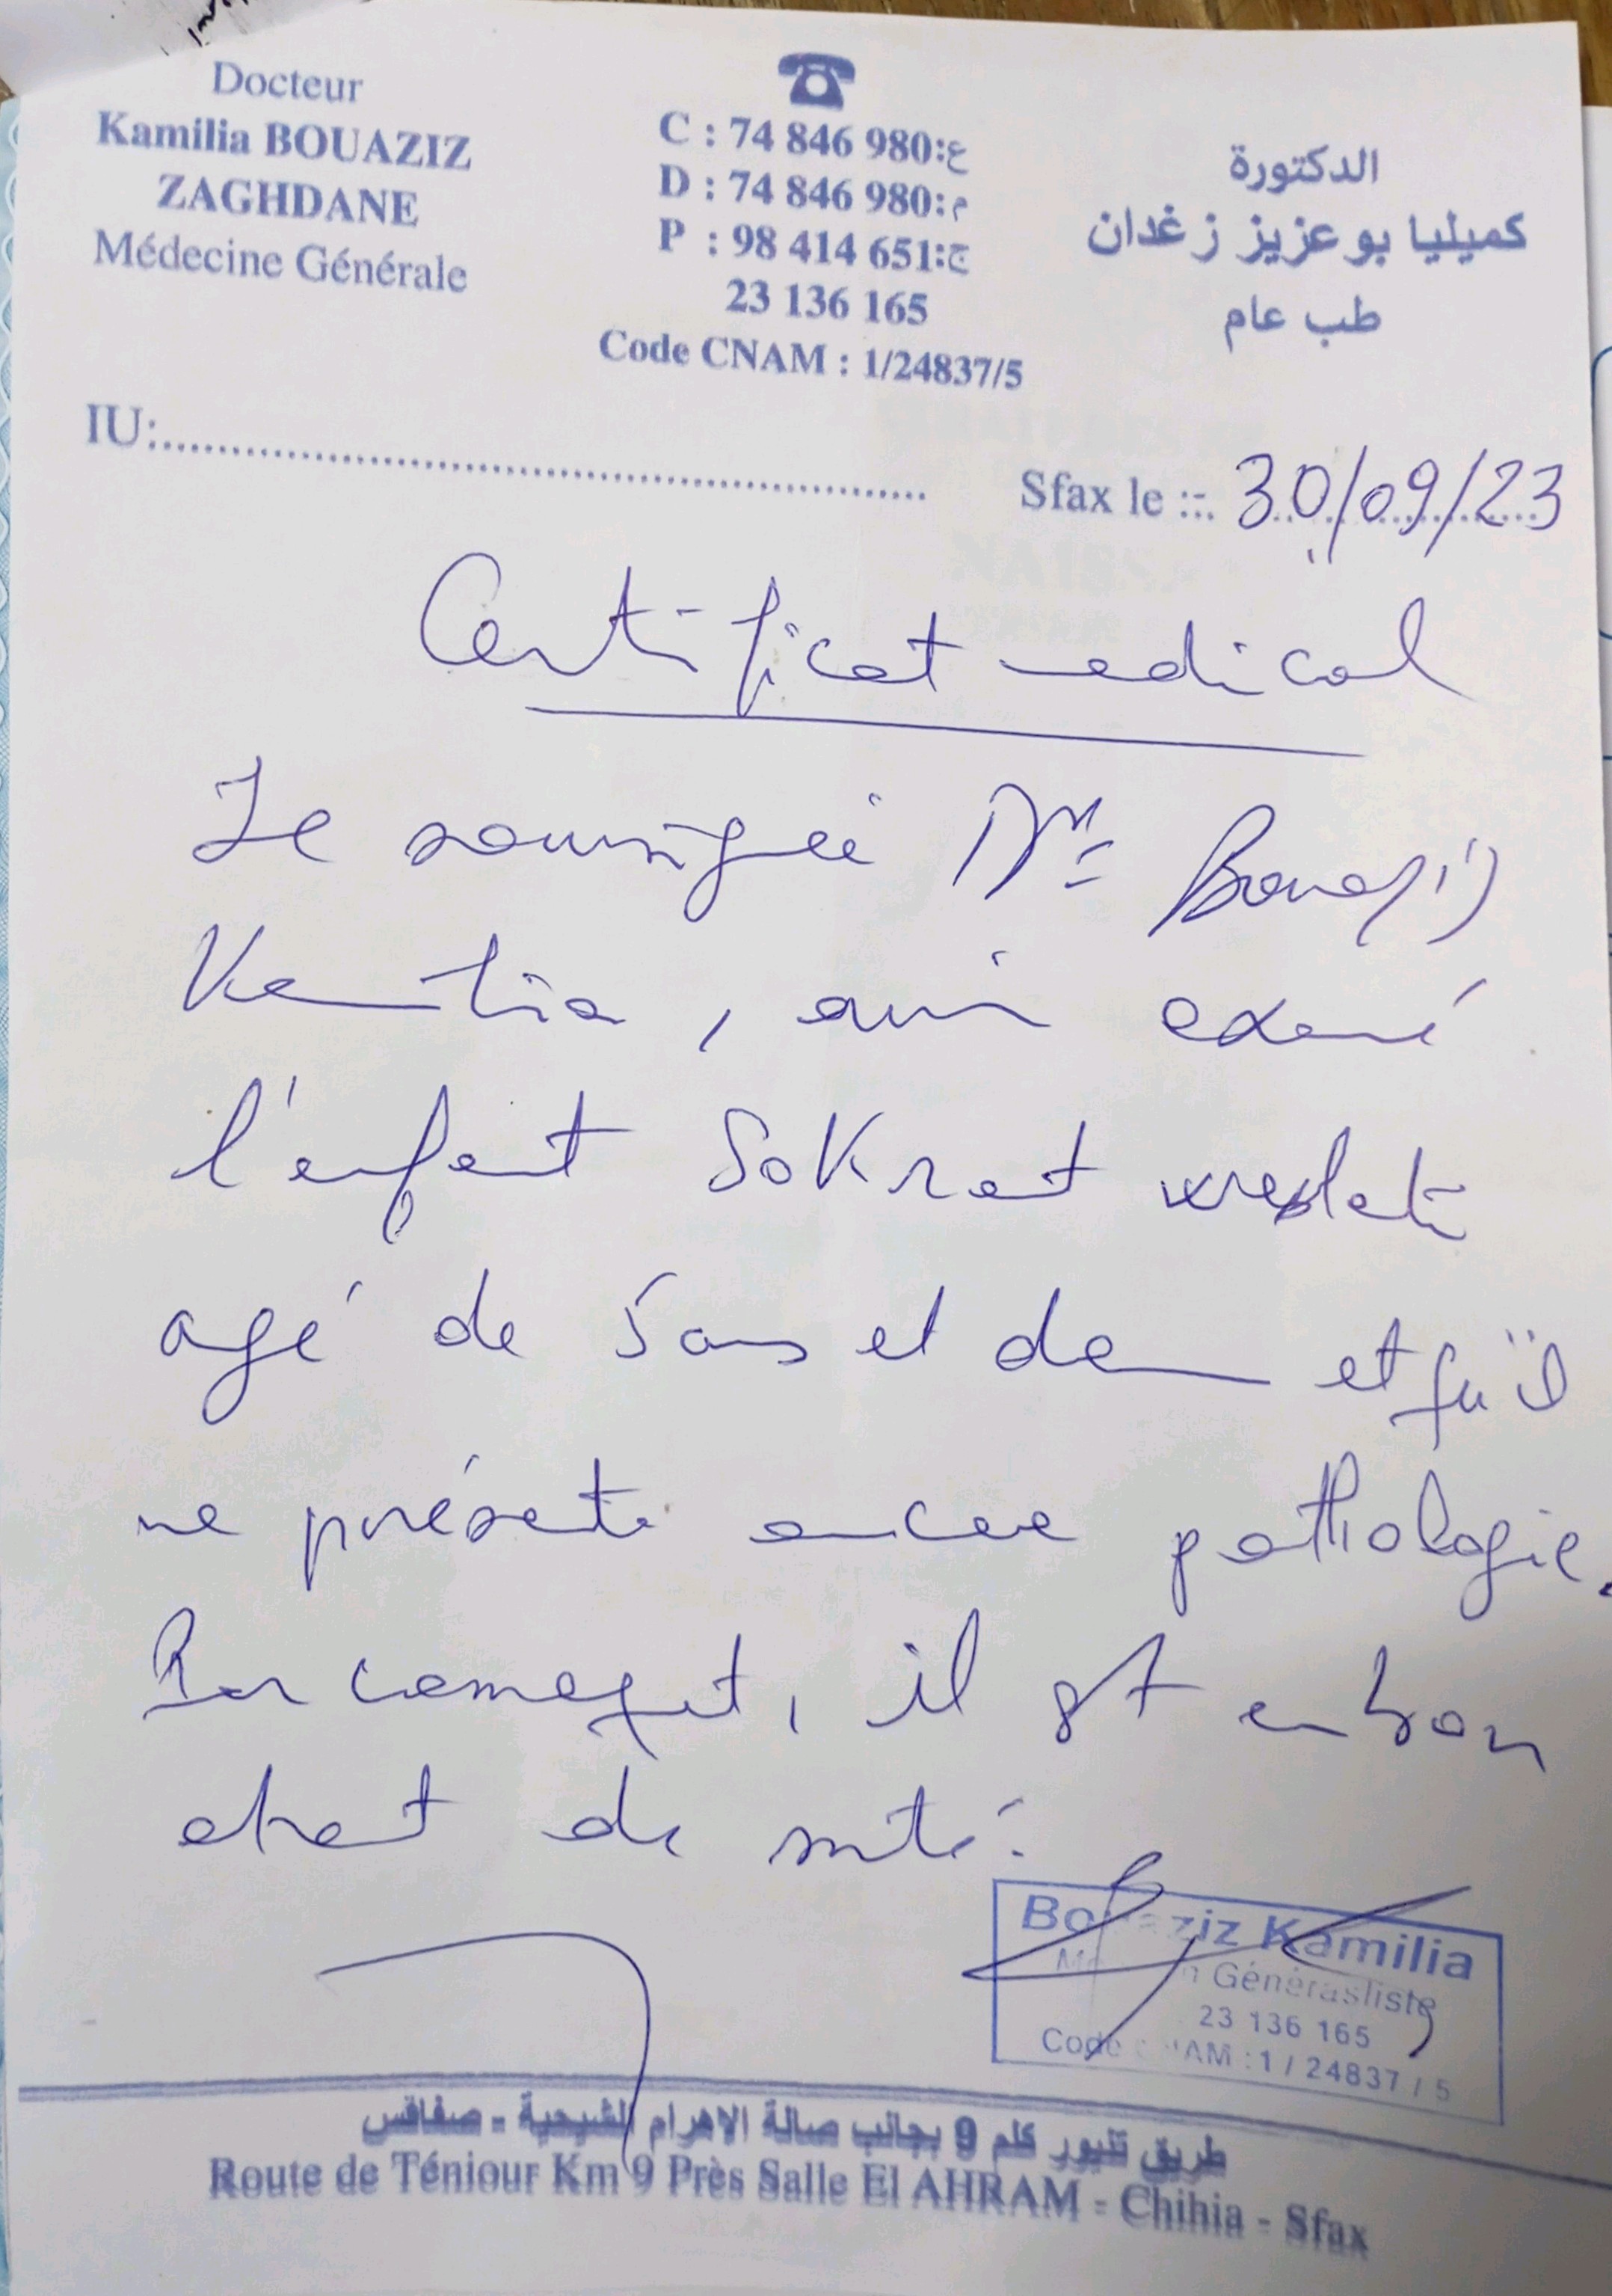 Docteur
Kamilia BOUAZIZ
ZAGHDANE
Médecine Générale
C : 74 846 980:ع
D : 74 846 980:م
P : 98 414 651:ج
23 136 165
Code CNAM : 1/24837/5
الدكتورة
كميليا بوعزيز زغدان
طب عام
IU:
Sfax le : 30/09/23
Certificat medical
Je soussignée Dr Bouaziz
Kamilia, avoir examiné
l'enfant Sokrat
agé de 5 ans et demi et qu'il
ne présente aucune pathologie.
Par conséquent, il est en bon
etat de santé.
Bouaziz Kamilia
Médecin Générasliste
23 136 165
Code CNAM : 1 / 24837 / 5
طريق تنيور كلم 9 بجانب صالة الاهرام الشيحية - صفاقس
Route de Téniour Km 9 Près Salle El AHRAM - Chihia - Sfax